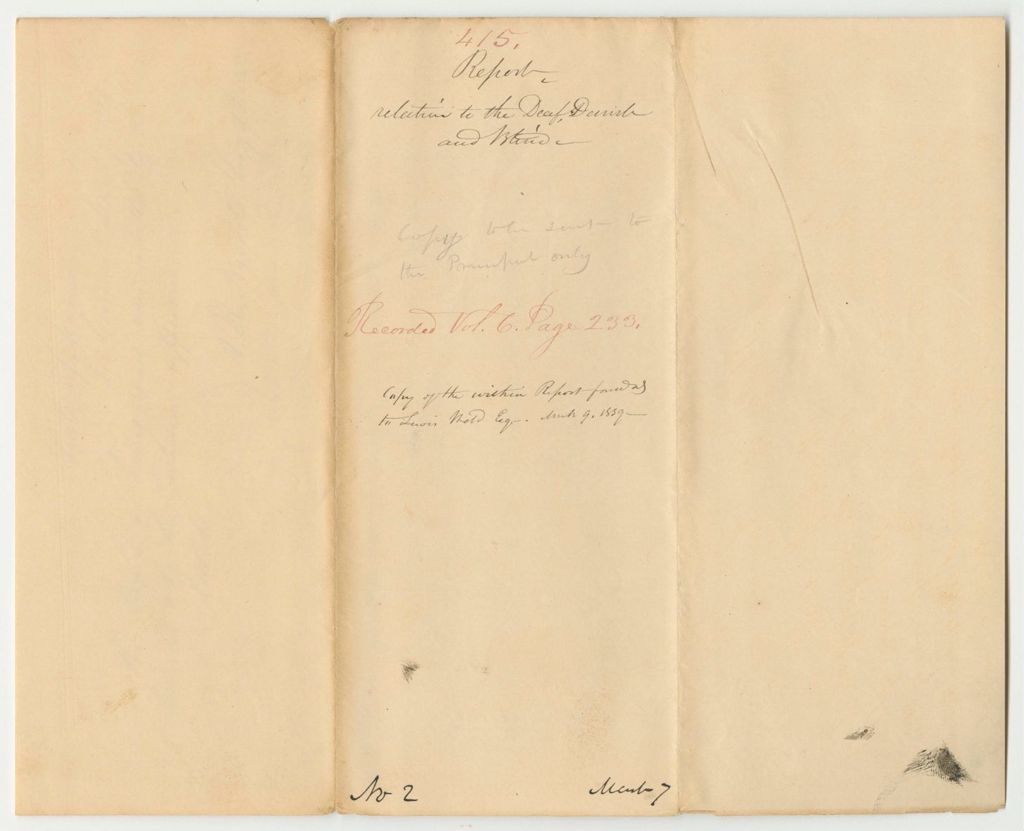 415.
Report
relation to the Deaf, Dumb
and Blind
Copy to be sent to
the Principal only
Recorded Vol. 6. Page 233.
Copy of the within Report forwd
to Lewis Weld Esq. March 9, 1839
No 2
March 7